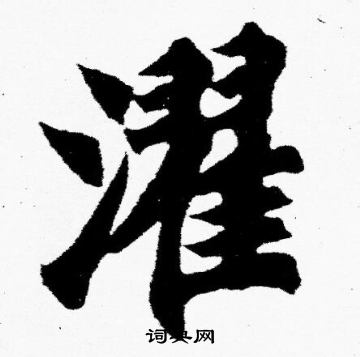 濯
词典网